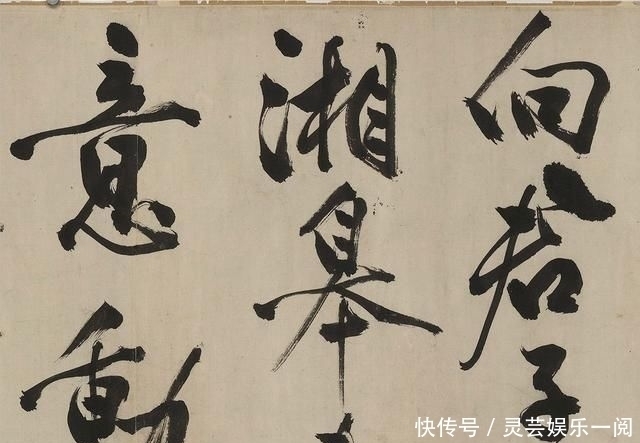 向君子
湘皋
意動
快传号／灵芸娱乐一阅